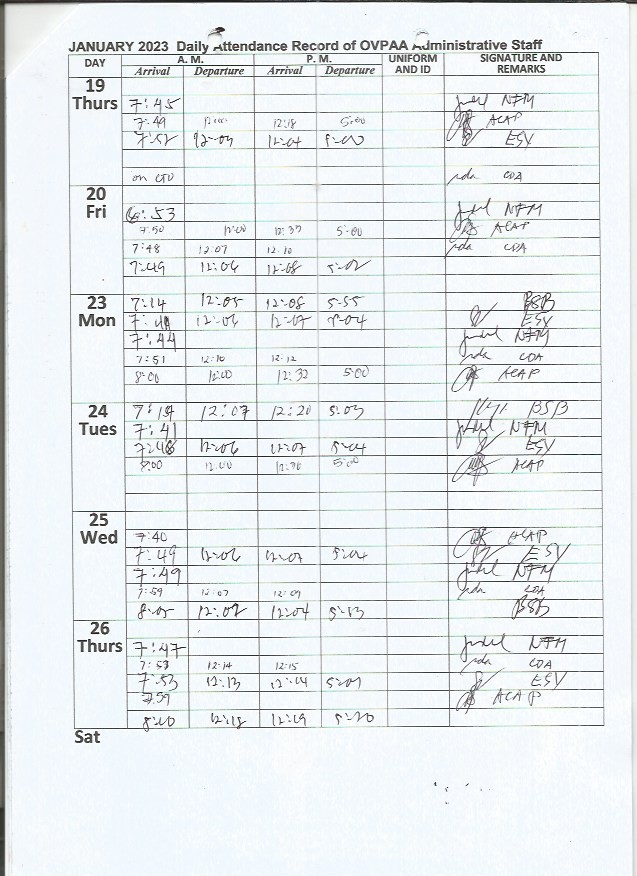 JANUARY 2023 Daily Attendance Record of OVPAA Administrative Staff
DAY A. M. P. M. UNIFORM AND ID SIGNATURE AND REMARKS
Arrival Departure Arrival Departure
19 Thurs
7:45 NFM
7:49 12:00 12:18 5:00 ACAP
7:52 12:04 5:00 ESY
on CTO CDA
20 Fri
6:53 NFM
7:50 12:00 12:37 5:00 ACAP
7:48 12:07 12:10 CDA
7:49 12:06 12:08 5:02
23 Mon
7:14 12:05 12:08 5:55 BSB
12:06 12:07 5:04 ESY
7:44 NFM
7:51 12:10 12:12 CDA
8:00 12:00 12:32 5:00 ACAP
24 Tues
7:19 12:07 12:20 5:03 BSB
7:41 NFM
7:48 12:06 12:07 5:04 ESY
8:00 12:00 5:00 ACAP
25 Wed
7:40 ACAP
7:49 12:06 12:07 5:04 ESY
7:49 NFM
7:59 12:07 12:09 CDA
8:05 12:02 12:04 5:13 BSB
26 Thurs
7:47 NFM
7:53 12:14 12:15 CDA
7:53 12:13 12:14 5:07 ESY
7:59 ACAP
8:10 12:18 12:19 5:20
Sat